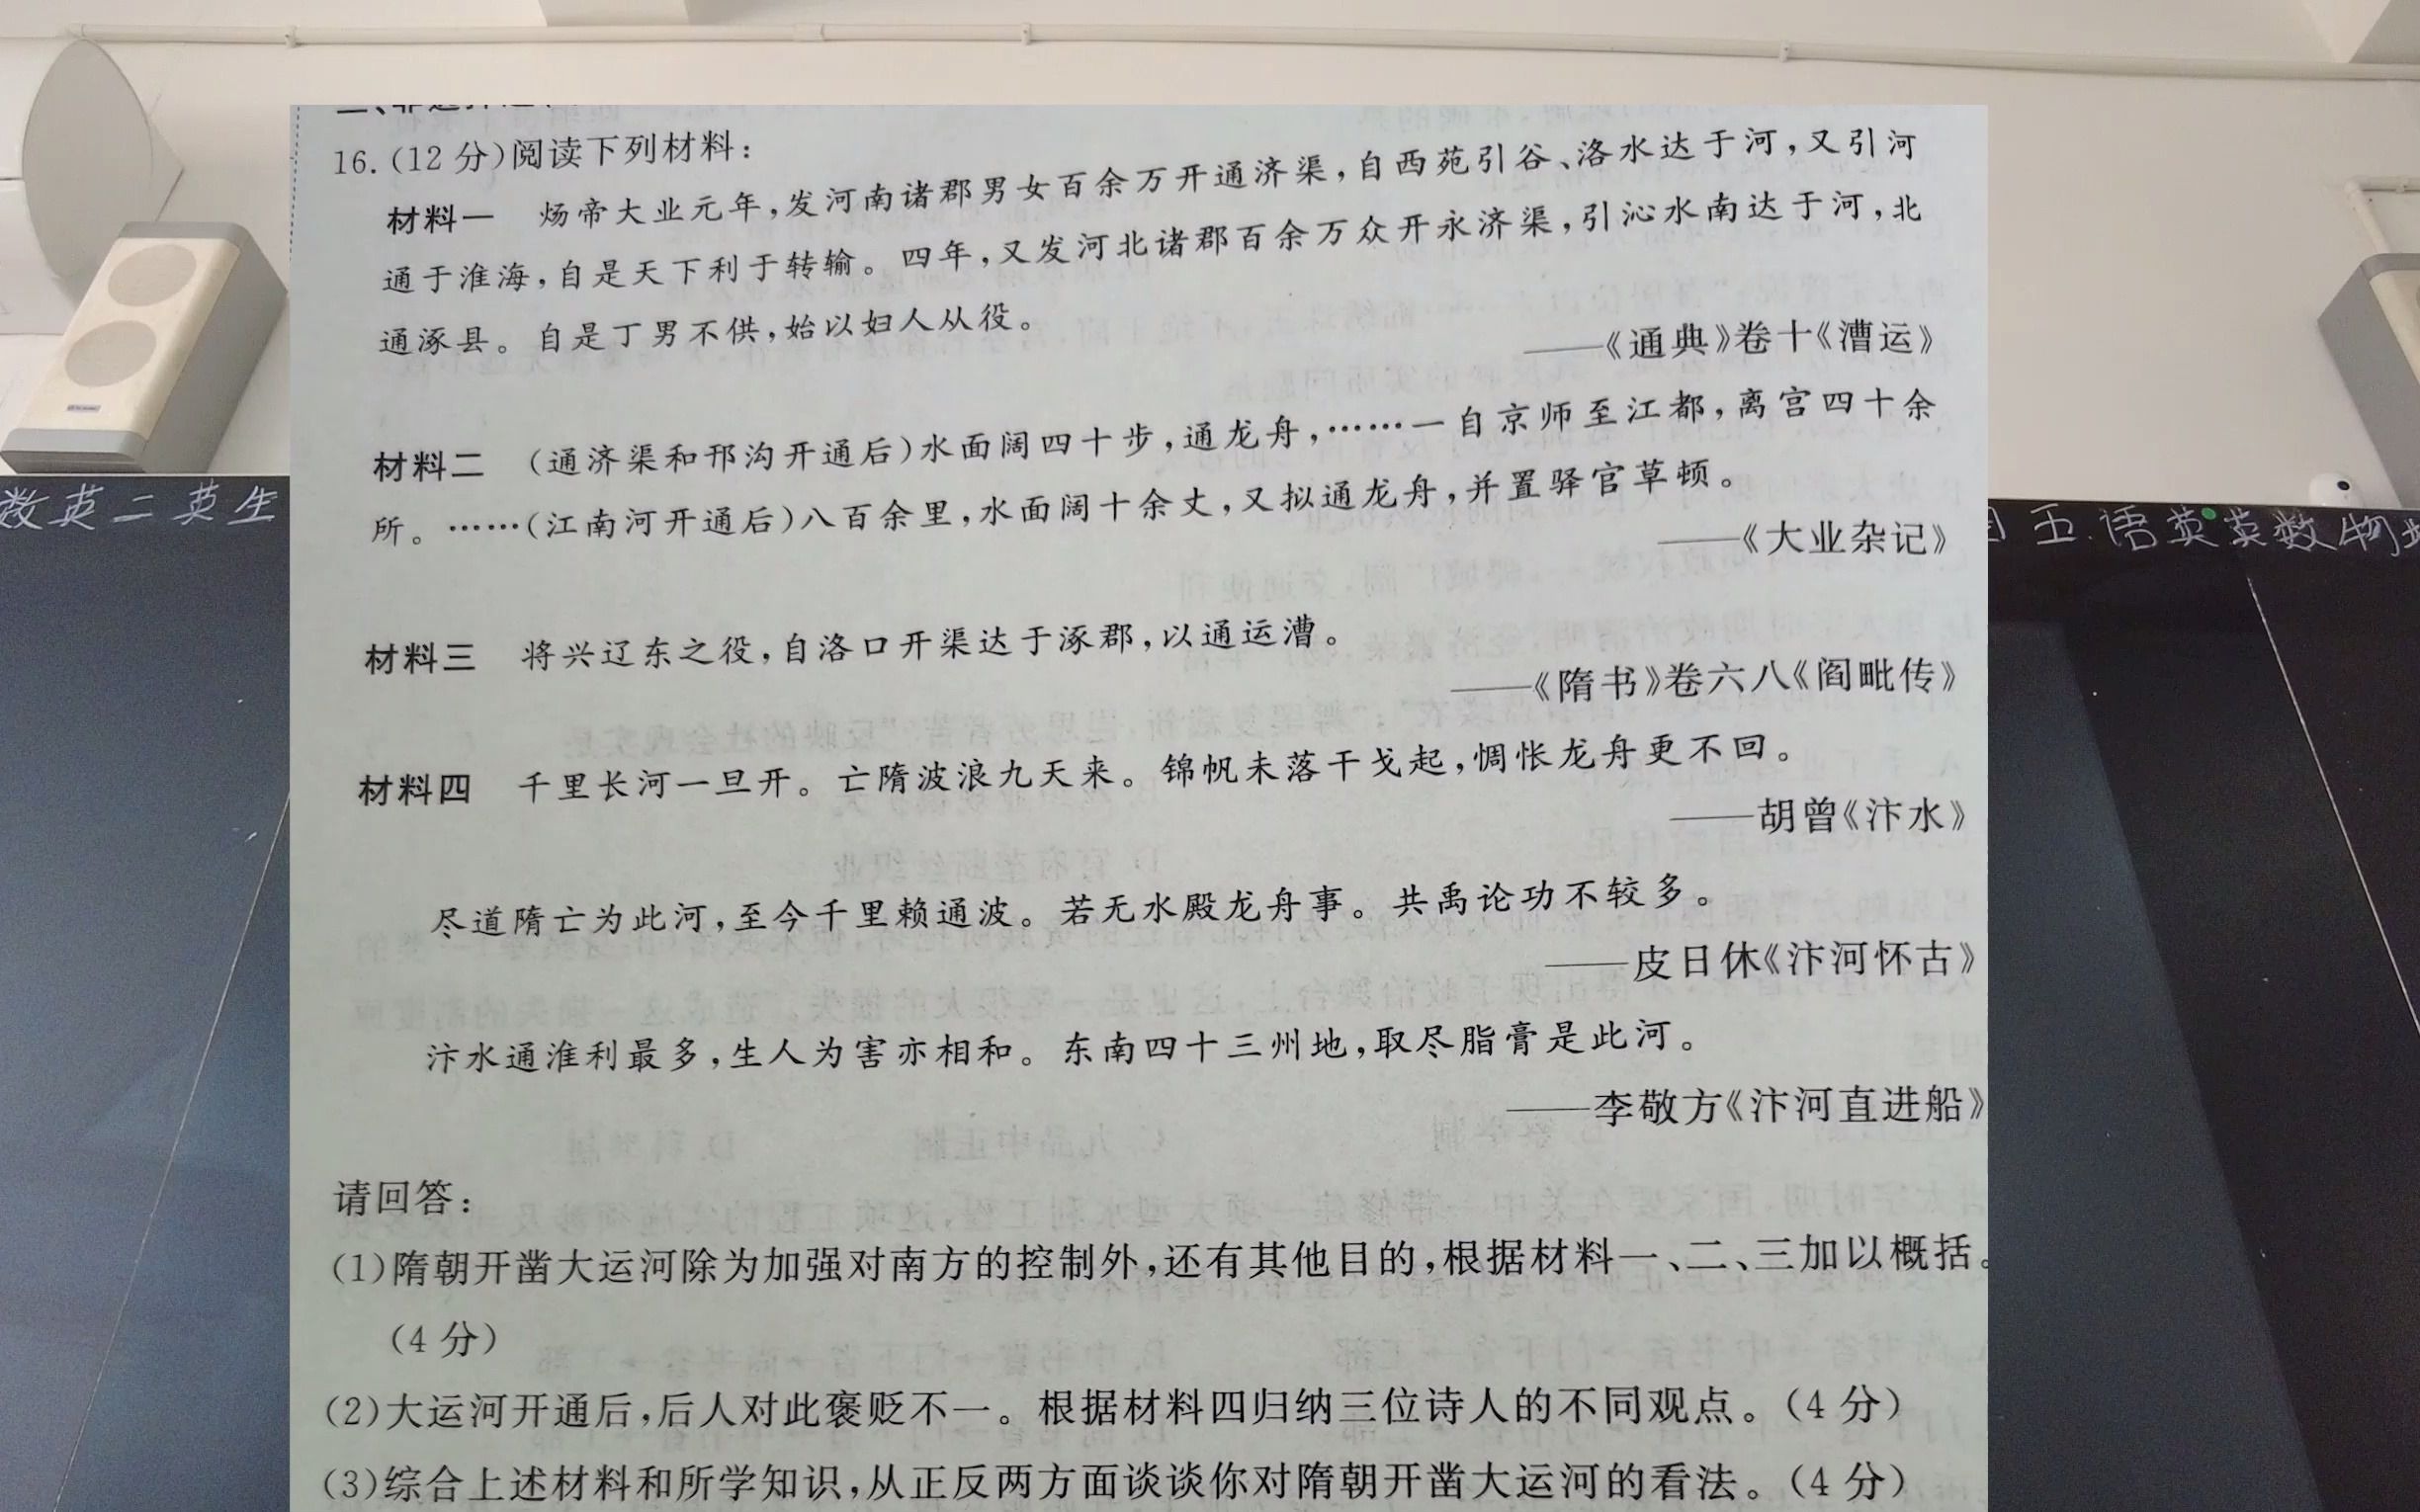 16.(12分)阅读下列材料：
材料一 炀帝大业元年，发河南诸郡男女百余万开通济渠，自西苑引谷、洛水达于河，又引河
通于淮海，自是天下利于转输。四年，又发河北诸郡百余万众开永济渠，引沁水南达于河，北
通涿县。自是丁男不供，始以妇人从役。
——《通典》卷十《漕运》
材料二 （通济渠和邗沟开通后）水面阔四十步，通龙舟，……一自京师至江都，离宫四十余
所。……（江南河开通后）八百余里，水面阔十余丈，又拟通龙舟，并置驿官草顿。
——《大业杂记》
材料三 将兴辽东之役，自洛口开渠达于涿郡，以通运漕。
——《隋书》卷六八《阎毗传》
材料四 千里长河一旦开。亡隋波浪九天来。锦帆未落干戈起，惆怅龙舟更不回。
——胡曾《汴水》
尽道隋亡为此河，至今千里赖通波。若无水殿龙舟事。共禹论功不较多。
——皮日休《汴河怀古》
汴水通淮利最多，生人为害亦相和。东南四十三州地，取尽脂膏是此河。
——李敬方《汴河直进船》
请回答：
(1)隋朝开凿大运河除为加强对南方的控制外，还有其他目的，根据材料一、二、三加以概括。
（4分）
(2)大运河开通后，后人对此褒贬不一。根据材料四归纳三位诗人的不同观点。（4分）
(3)综合上述材料和所学知识，从正反两方面谈谈你对隋朝开凿大运河的看法。（4分）
数英二英生
五.语英英数物